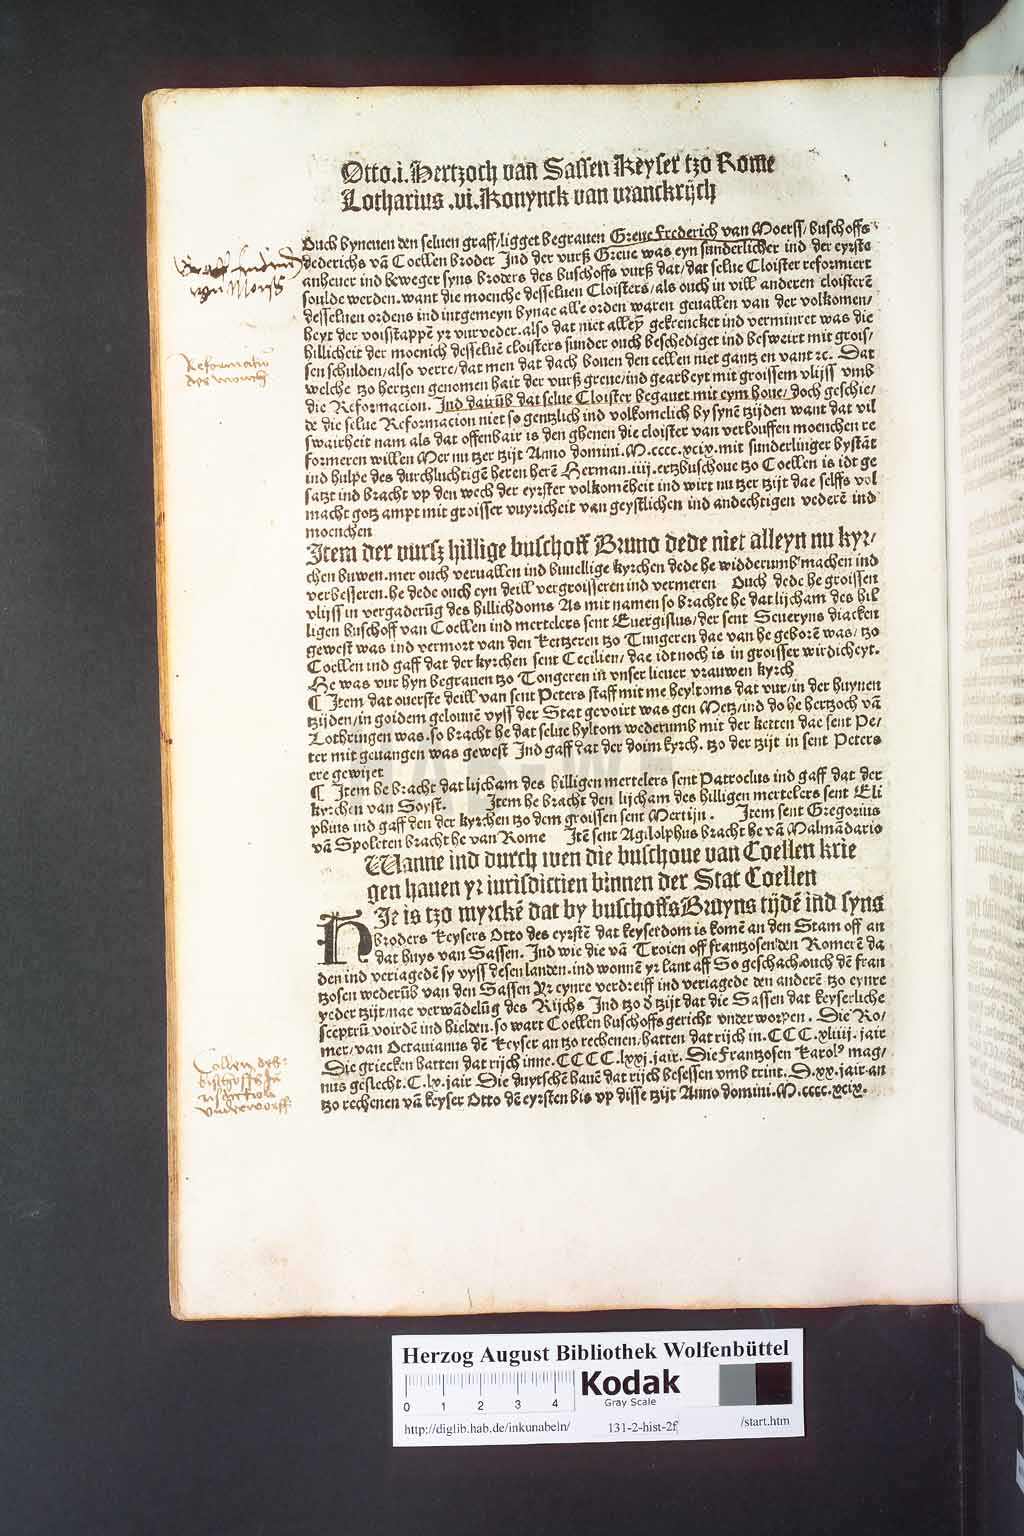 Otto.i. Hertzoch van Sassen Keyser tzo Rome
Lotharius .vi. Konynck van vranckrijch
Ouch byneuen den seluen graff/ligget begrauen Greue Frederich van Moerss/buschoffs
dederichs vā Coellen broder Ind der vurß Greue was eyn sunderlicher ind der eyrste
anheuer ind beweger syns broders des buschoffs vurß dat/dat selue Cloister reformiert
soulde werden.want die moenche desseluen Cloisters/als ouch in vill anderen cloisterē
desseluen ordens ind intgemeyn bynae alle orden waren geuallen van der volkomen/
heyt der voisstappē yr vurveder.also dat niet alleyn gekrencket ind verminret was die
hillicheit der moenich desseluē cloisters sunder ouch beschediget ind besweirt mit grois/
sen schulden/also verre/dat men dat dach bouen den cellen niet gantz en vant ꝛc. Dat
welche tzo hertzen genomen hait der vurß greue/ind gearbeyt mit groissem vlijss vmb
die Reformacion. Ind darūb dat selue Cloister begauet mit eym houe/doch geschie/
de die selue Reformacion niet so gentzlich ind volkomelich by synē tzijden want dat vil
swairheit nam als dat offenbair is den ghenen die cloister van verlouffen moenchen re
formeren willen Mer nu tzer tzijt Anno domini.M.cccc.xcix.mit sunderlinger bystāt
ind hulpe des durchluchtigē heren herē Herman.iiij.ertzbuschoue tzo Coellen is idt ge
satzt ind bracht vp den wech der eyrster volkomēheit ind wirt nu tzer tzijt dae selffs vol
macht gotz ampt mit groisser vuyricheit van geystlichen ind andechtigen vederē ind
moenchen
Item der vursz hillige buschoff Bruno dede niet alleyn nu kyr/
chen buwen.mer ouch veruallen ind buuellige kyrchen dede he widderumb machen ind
verbesseren.he dede ouch eyn deill vergroisseren ind vermeren Ouch dede he groissen
vlijss in vergaderūg des hillichdoms As mit namen so brachte he dat lijcham des hil
ligen buschoff van Coellen ind mertelers sent Euergislus/der sent Seueryns diacken
gewest was ind vermort van den Ketzeren tzo Tungeren dae van he geborē was/tzo
Coellen ind gaff dat der kyrchen sent Cecilien/dae idt noch is in groisser wirdicheyt.
He was vur hyn begrauen tzo Tongeren in vnser lieuer vrauwen kyrch
¶ Item dat ouerste deill van sent Peters staff mit me heyltoms dat vur/in der huynen
tzijden/in goidem gelouuē vyss der Stat gevoirt was gen Metz/ind do he hertzoch vā
Lothringen was.so bracht he dat selue hyltom wederumb mit der ketten dae sent Pe/
ter mit geuangen was gewest Ind gaff dat der doim kyrch. tzo der tzijt in sent Peters
ere gewijet
¶ Item he bracht dat lijcham des hilligen mertelers sent Patroclus ind gaff dat der
kyrchen van Soyst. Item he bracht den lijcham des hilligen mertelers sent Eli
phius ind gaff den der kyrchen tzo dem groissen sent Mertijn. Item sent Gregorius
vā Spoleten bracht he van Rome Itē sent Agilolphus bracht he vā Malmādario
Wanne ind durch wen die buschoue van Coellen krie
gen hauen yr iurisdictien binnen der Stat Coellen
HIe is tzo myrckē dat by buschoffs Bruyns tijdē ind syns
broders keysers Otto des eyrstē dat keyserdom is komē an den Stam off an
dat huys van Sassen. Ind wie die vā Troien off frantzosen den Romerē da
den ind veriagedē sy vyss desen landen.ind wonnē yr lant aff So geschach ouch dē fran
tzosen wederūb van den Sassen Yr eynre verdreiff ind veriagede den anderē tzo eynre
yeder tzijt/nae verwādelūg des Rijchs Ind tzo d tzijt dat die Sassen dat keyserliche
sceptrū voirdē ind hielden.so wart Coellen buschoffs gericht vnder worpen. Die Ro/
mer/van Octauianus dē keyser an tzo rechenen/hatten dat rijch in.CCC.xliiij.jair
Die griecken hatten dat rijch inne.CCCC.lxxj.jair. Die Frantzosen Karolꝰ mag/
nus geslecht.C.lv.jair Die duytschē hauē dat rijch besessen vmb trint.D.xx.jair an
tzo rechenen vā keyser Otto dē eyrsten bis vp disse tzijt Anno domini.M.cccc.xcix.
Reformation
der monch
Collen des
bischoffs Ju
risdiction
vnderworff
Herzog August Bibliothek Wolfenbüttel
0 1 2 3 4
Kodak
Gray Scale
http://diglib.hab.de/inkunabeln/ 131-2-hist-2f /start.htm